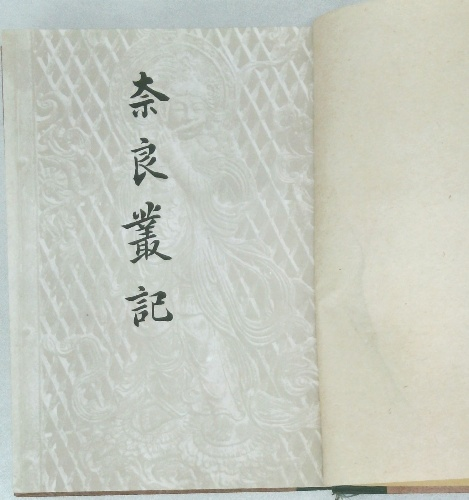 奈良叢記